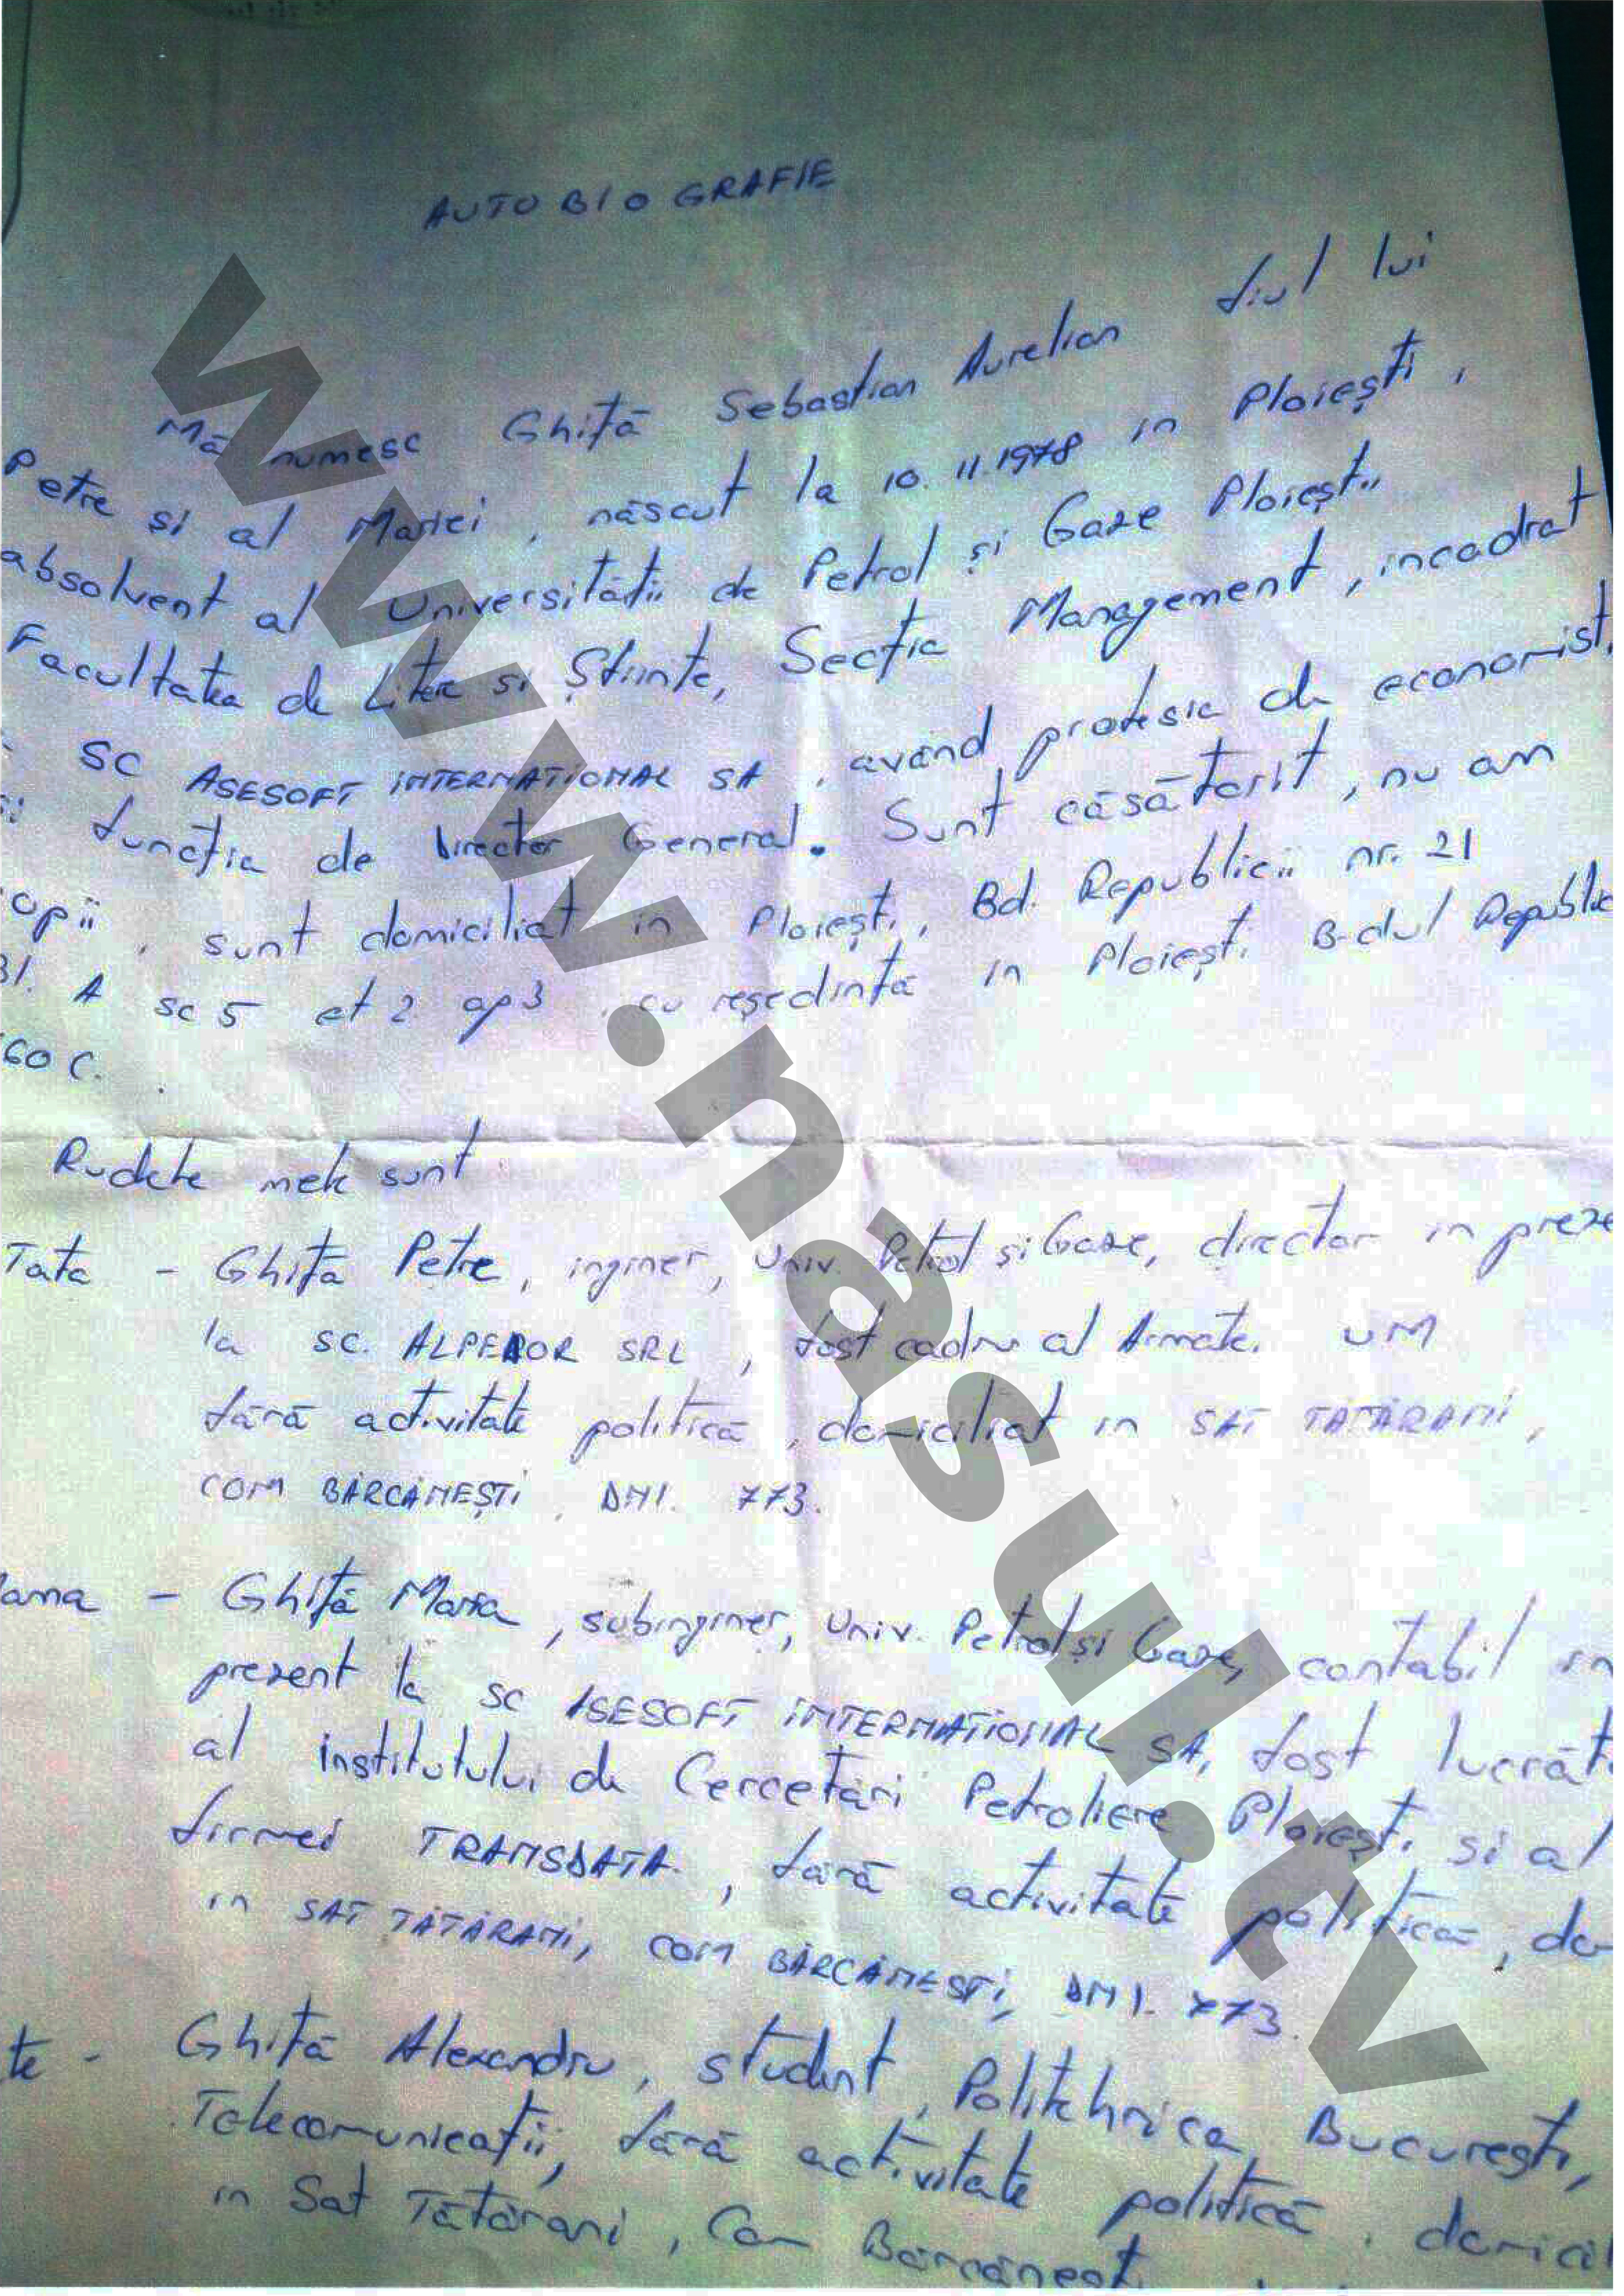 AUTOBIOGRAFIE
Mă numesc Ghiță Sebastian Aurelian fiul lui
Petre si al Mariei, născut la 10.11.1978 in Ploiești,
absolvent al Universității de Petrol și Gaze Ploiești
Facultatea de Litere si Științe, Secția Management, incadrat
SC ASESOFT INTERNATIONAL SA, avand profesia de economist
funcția de Director General. Sunt căsătorit, nu am
copii, sunt domiciliat in Ploiești, Bd. Republicii nr. 21
Bl. A sc 5 et 2 ap 3, cu reședința in Ploiești B-dul Republic
60 C.
Rudele mele sunt
Tata - Ghiță Petre, inginer, Univ. Petrol și Gaze, director in preze
la SC. SRL, fost cadru al Armatei UM
fără activitate politică, domiciliat in SAT TĂTĂRANI,
COM BĂRCĂNEȘTI, DN1. 773.
Mama - Ghiță Maria, subinginer, Univ. Petrol și Gaze, contabil in
prezent la SC ASESOFT INTERNATIONAL SA, fost lucrăt
al institutului de Cercetări Petroliere Ploiești si al
firmei TRANSDATA, fără activitate politică, do
in SAT TĂTĂRANI, COM BĂRCĂNEȘTI, DN1. 773.
te - Ghiță Alexandru, student, Politehnica București,
Telecomunicații, fără activitate politică, domicil
in Sat Tătărani, Com Bărcănești
www.nasul.tv